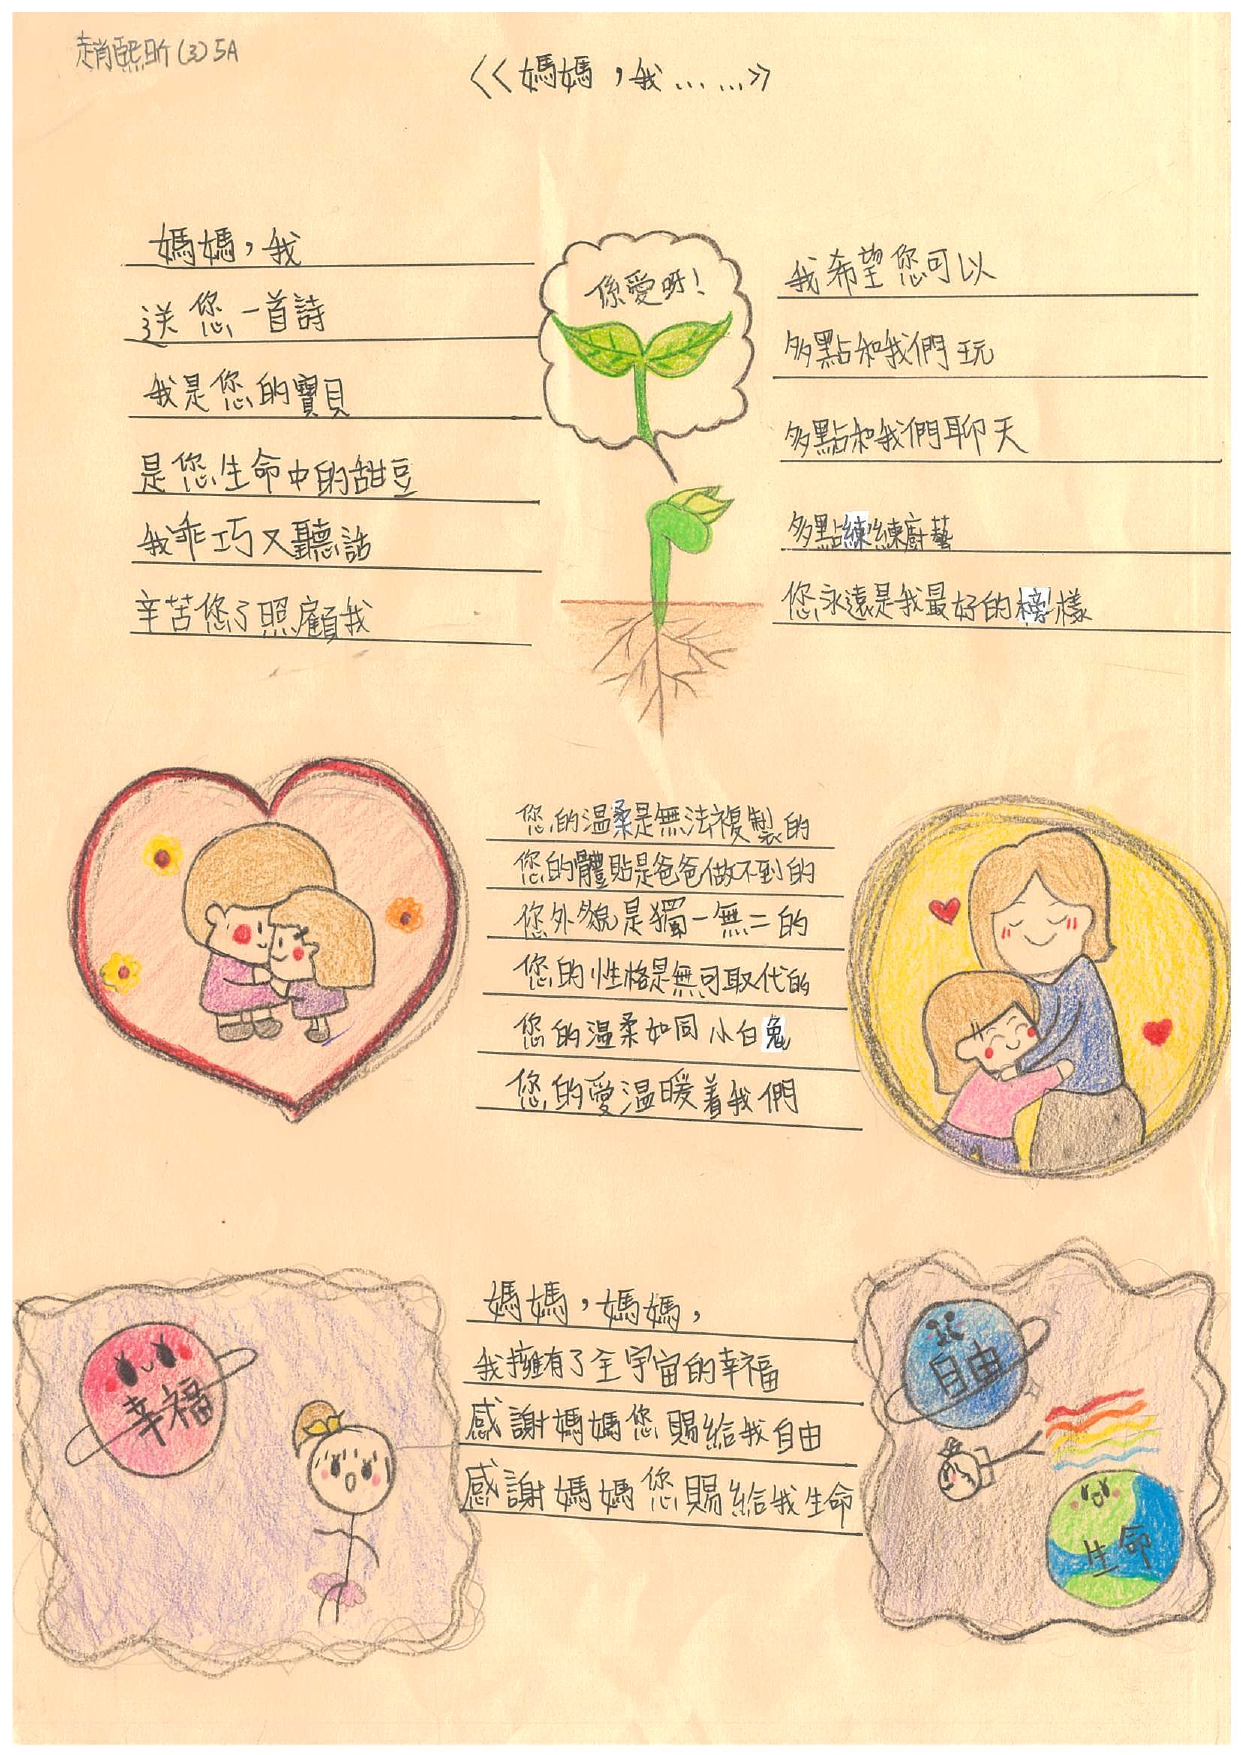 趙熙昕(3)5A
<<媽媽，我……>>
媽媽，我
送您一首詩
我是您的寶貝
是您生命中的甜豆
我乖巧又聽話
辛苦您了照顧我
係愛呀！
我希望您可以
多點和我們玩
多點和我們聊天
多點練練廚藝
您永遠是我最好的榜樣
您的溫柔是無法複製的
您的體貼是爸爸做不到的
您外貌是獨一無二的
您的性格是無可取代的
您的溫柔如同小白兔
您的愛溫暖着我們
媽媽，媽媽，
我擁有了全宇宙的幸福
感謝媽媽您賜給我自由
感謝媽媽您賜給我生命
幸福
自由
生命